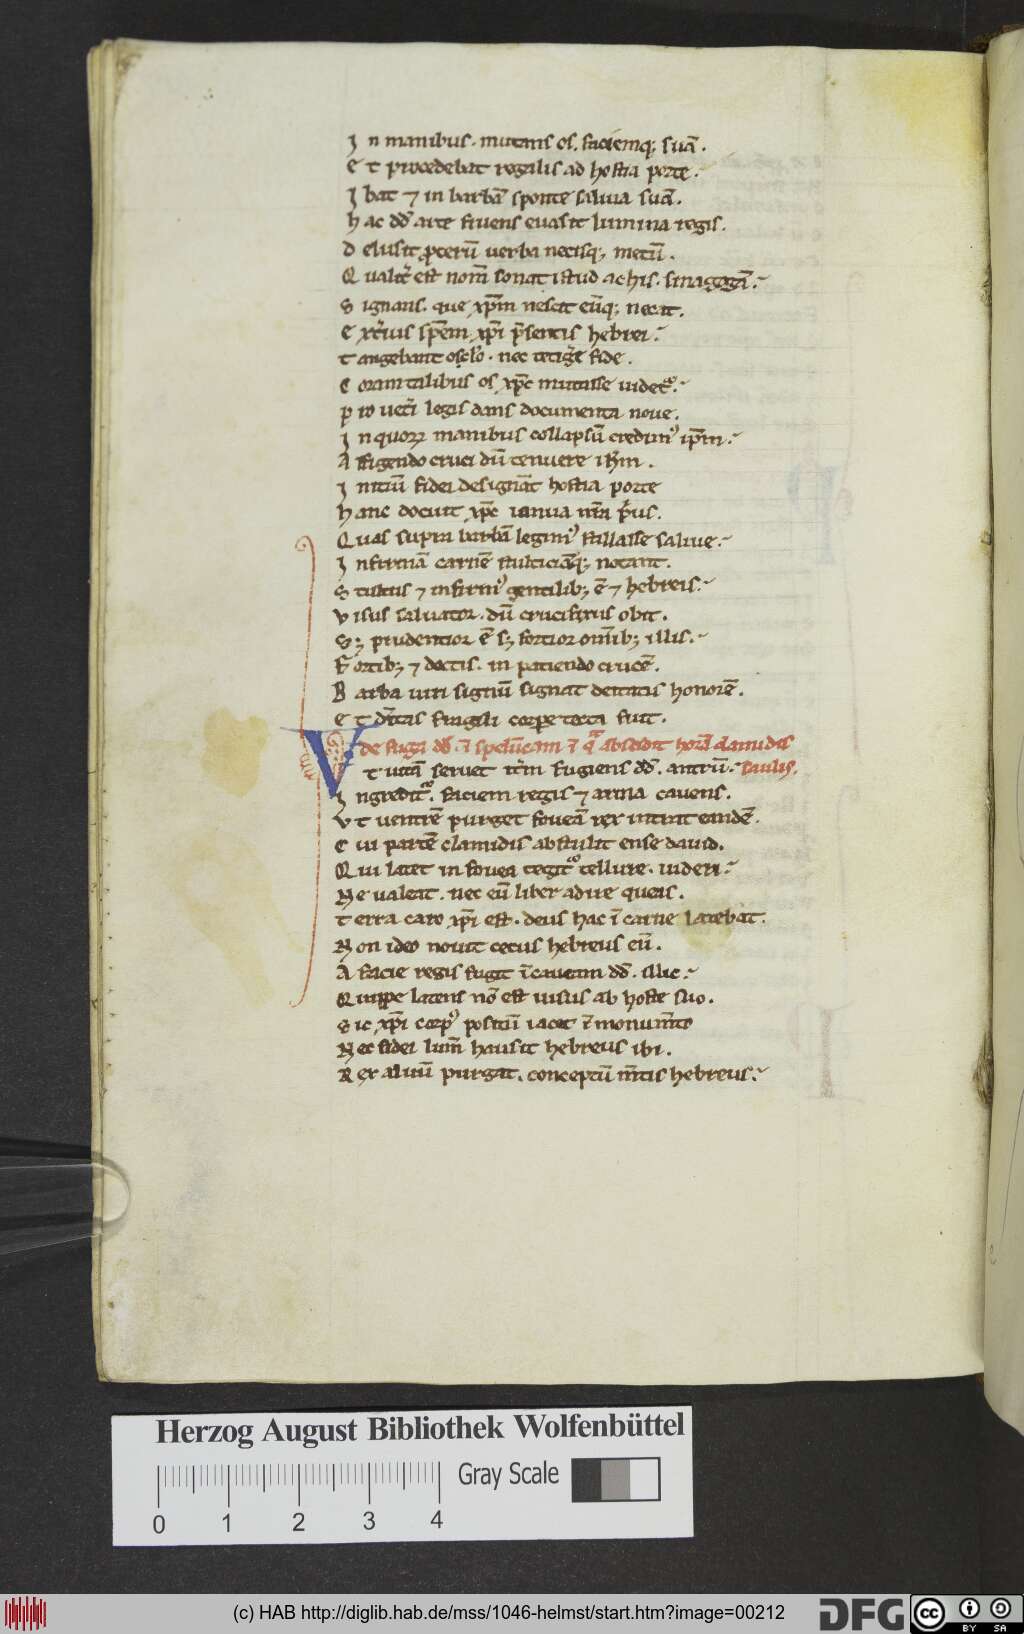 J n manibus. mutans os. faciemq; suā.
E t procedebat regalis ad hostia porte.
J bat ⁊ in barbā sponte saliua suā.
H ac dd̄ arte fruens euasit lumina regis.
D elusit ꝓcerū uerba necisq; metū.
Q ualit̄ est nom̄ sonat istud achis. sinagogā.
S ignans. que xp̄m nescit eūq; necat.
E xt̄ius sp̄em xp̄i p̄sentis hebrei.
T angebant osc̄lo. nec tetiḡe fide.
C oram talibus os xp̄c mutasse uidet᷒.
P ro uet̄i legis dans documenta noue.
J n quoꝝ manibus collapsū credim᷒ ip̄m.
A ffigendo cruci dū tenuere ih̄m.
J nitiū fidei designāt hostia porte
H anc docuit xp̄c ianua nr̄a p̄us.
Q uas supra barbā legim᷒ stillasse saliue.
J nfirmā carnē stulticiāq; notant.
S tultus ⁊ infirm᷒ gentilib; ē ⁊ hebreis.
V isus saluator. dū crucifixus obit.
S; prudentior ē s; fortior om̄ib; illis.
F ortib; ⁊ doctis. in patiendo crucē.
B arba uiri signū signat deitatis honorē.
E t dītas fragili corpe tecta fuit.
de fuga dd̄. ī spelūcam ⁊ q̄ abscidit horā clamidis
V T uitā seruet it̄m fugiens dd̄. antrū. saulis.
J ngredit᷒. faciem regis ⁊ arma cauens.
V t uentrē purget foueā rex intrat eandē.
C ui partē clamidis abstulit ense dauid.
Q ui latet in fouea tegit᷒ tellure. uideri.
N e ualeat. nec eū liber adire queas.
T erra caro xp̄i est. deus hac ī carne latebat.
N on ideo nouit cecus hebreus eū.
A facie regis fugit ī caueam dd̄. illic.
Q uippe latens nō est uisus ab hoste suo.
S ic xp̄i corp᷒ positū iacet ī monum̄to
N ec fidei lum̄ hausit hebreus ibi.
R ex aluū purgat. conceptū m̄tis hebreus.
Herzog August Bibliothek Wolfenbüttel
Gray Scale
0 1 2 3 4
(c) HAB http://diglib.hab.de/mss/1046-helmst/start.htm?image=00212
DFG
cc BY SA